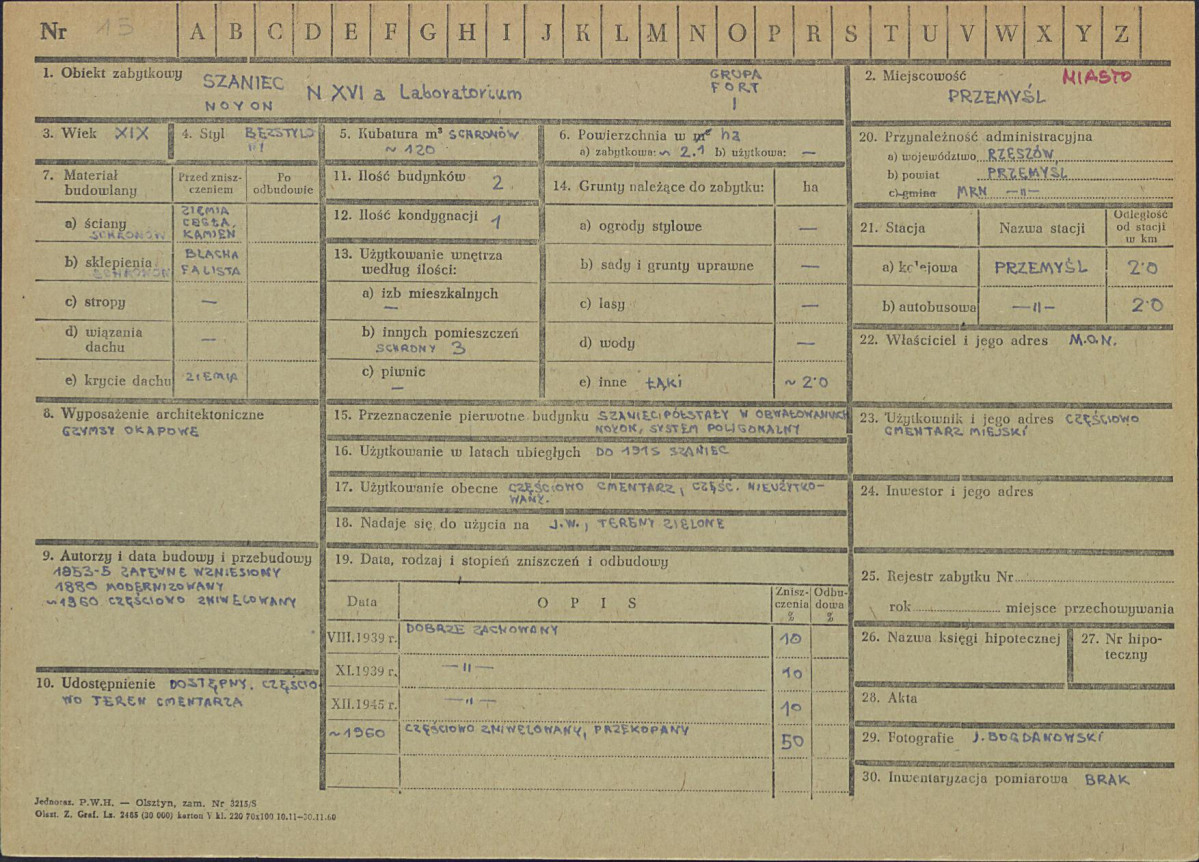 Nr 15 A B C D E F G H I J K L M N O P R S T U V W X Y Z
1. Obiekt zabytkowy SZANIEC N XVI a Laboratorium GRUPA
NOYON FORT
I
2. Miejscowość MIASTO
PRZEMYŚL
3. Wiek XIX
4. Styl BEZSTYLO
WY
5. Kubatura m³ SCHRONÓW
~ 120
6. Powierzchnia w m² ha
a) zabytkowa: ~ 2.1 b) użytkowa: —
7. Materiał budowlany
Przed znisz-
czeniem
Po
odbudowie
a) ściany SCHRONÓW
ZIEMIA
CEGŁA,
KAMIEŃ
b) sklepienia SCHRONÓW
BLACHA
FALISTA
c) stropy —
d) wiązania
dachu —
e) krycie dachu ZIEMIA
8. Wyposażenie architektoniczne
GZYMSY OKAPOWE
9. Autorzy i data budowy i przebudowy
1853-5 ZAPEWNE WZNIESIONY
1880 MODERNIZOWANY
~1960 CZĘŚCIOWO ZNIWELOWANY
10. Udostępnienie DOSTĘPNY, CZĘŚCIO
WO TEREN CMENTARZA
11. Ilość budynków 2
12. Ilość kondygnacji 1
13. Użytkowanie wnętrza
według ilości:
a) izb mieszkalnych
—
b) innych pomieszczeń
SCHRONY 3
c) piwnic
—
14. Grunty należące do zabytku: ha
a) ogrody stylowe —
b) sady i grunty uprawne —
c) lasy —
d) wody —
e) inne ŁĄKI ~ 2.0
15. Przeznaczenie pierwotne budynku SZANIEC PÓŁSTAŁY W OBWAŁOWANIACH
NOYON, SYSTEM POLIGONALNY
16. Użytkowanie w latach ubiegłych DO 1915 SZANIEC
17. Użytkowanie obecne CZĘŚCIOWO CMENTARZ, CZĘŚĆ. NIEUŻYTKO-
WANY.
18. Nadaje się do użycia na J.W., TERENY ZIELONE
19. Data, rodzaj i stopień zniszczeń i odbudowy
Data O P I S Znisz-
czenia
% Odbu-
dowa
%
VIII.1939 r. DOBRZE ZACHOWANY 10
XI.1939 r. —"— 10
XII.1945 r. —"— 10
~1960 CZĘŚCIOWO ZNIWELOWANY, PRZEKOPANY 50
20. Przynależność administracyjna
a) województwo RZESZÓW
b) powiat PRZEMYŚL
c) gmina MRN —"—
21. Stacja Nazwa stacji Odległość
od stacji
w km
a) kolejowa PRZEMYŚL 2.0
b) autobusowa —"— 2.0
22. Właściciel i jego adres M.O.N.
23. Użytkownik i jego adres CZĘŚCIOWO
CMENTARZ MIEJSKI
24. Inwestor i jego adres
25. Rejestr zabytku Nr
rok miejsce przechowywania
26. Nazwa księgi hipotecznej
27. Nr hipo-
teczny
28. Akta
29. Fotografie J. BOGDANOWSKI
30. Inwentaryzacja pomiarowa BRAK
Jednoraz. P.W.H. — Olsztyn, zam. Nr 3215/S
Olszt. Z. Graf. Ls. 2485 (30 000) karton V kl. 220 70x100 10.11—30.11.60